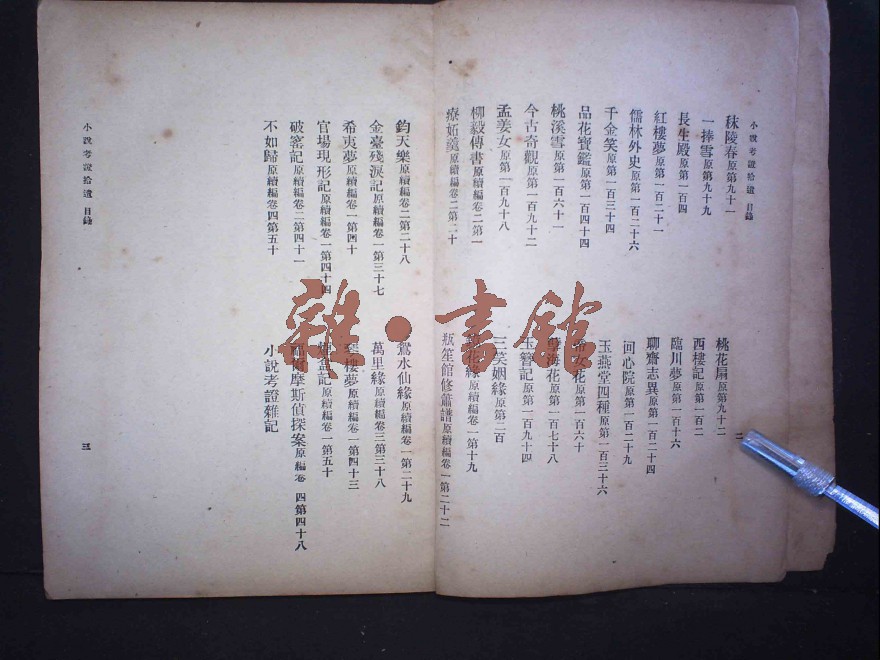 小說考證拾遺 目錄
二
秣陵春原第九十一
桃花扇原第九十二
一捧雪原第九十九
西樓記原第一百二
長生殿原第一百四
臨川夢原第一百十六
紅樓夢原第一百二十一
聊齋志異原第一百二十四
儒林外史原第一百二十六
回心院原第一百二十九
千金笑原第一百三十四
玉燕堂四種原第一百三十六
品花寶鑑原第一百四十四
女花原第一百六十
桃溪雪原第一百六十一
海花原第一百七十八
今古奇觀原第一百九十二
玉簪記原第一百九十四
孟姜女原第一百九十八
三笑姻緣原第二百
柳毅傳書原續編卷二第一
花緣原續編卷一第十九
療妬羹原續編卷二第二十
瓶笙館修簫譜原續編卷一第二十二
鈞天樂原續編卷二第二十八
鴛水仙緣原續編卷一第二十九
金臺殘淚記原續編卷一第三十七
萬里緣原續編卷三第三十八
希夷夢原續編卷一第四十
樓夢原續編卷一第四十三
官場現形記原續編卷一第四十四
記原續編卷一第五十
破窰記原續編卷二第四十一
摩斯偵探案原編卷四第四十八
不如歸原續編卷四第五十
小說考證雜記
小說考證拾遺 目錄
三
雜·書館